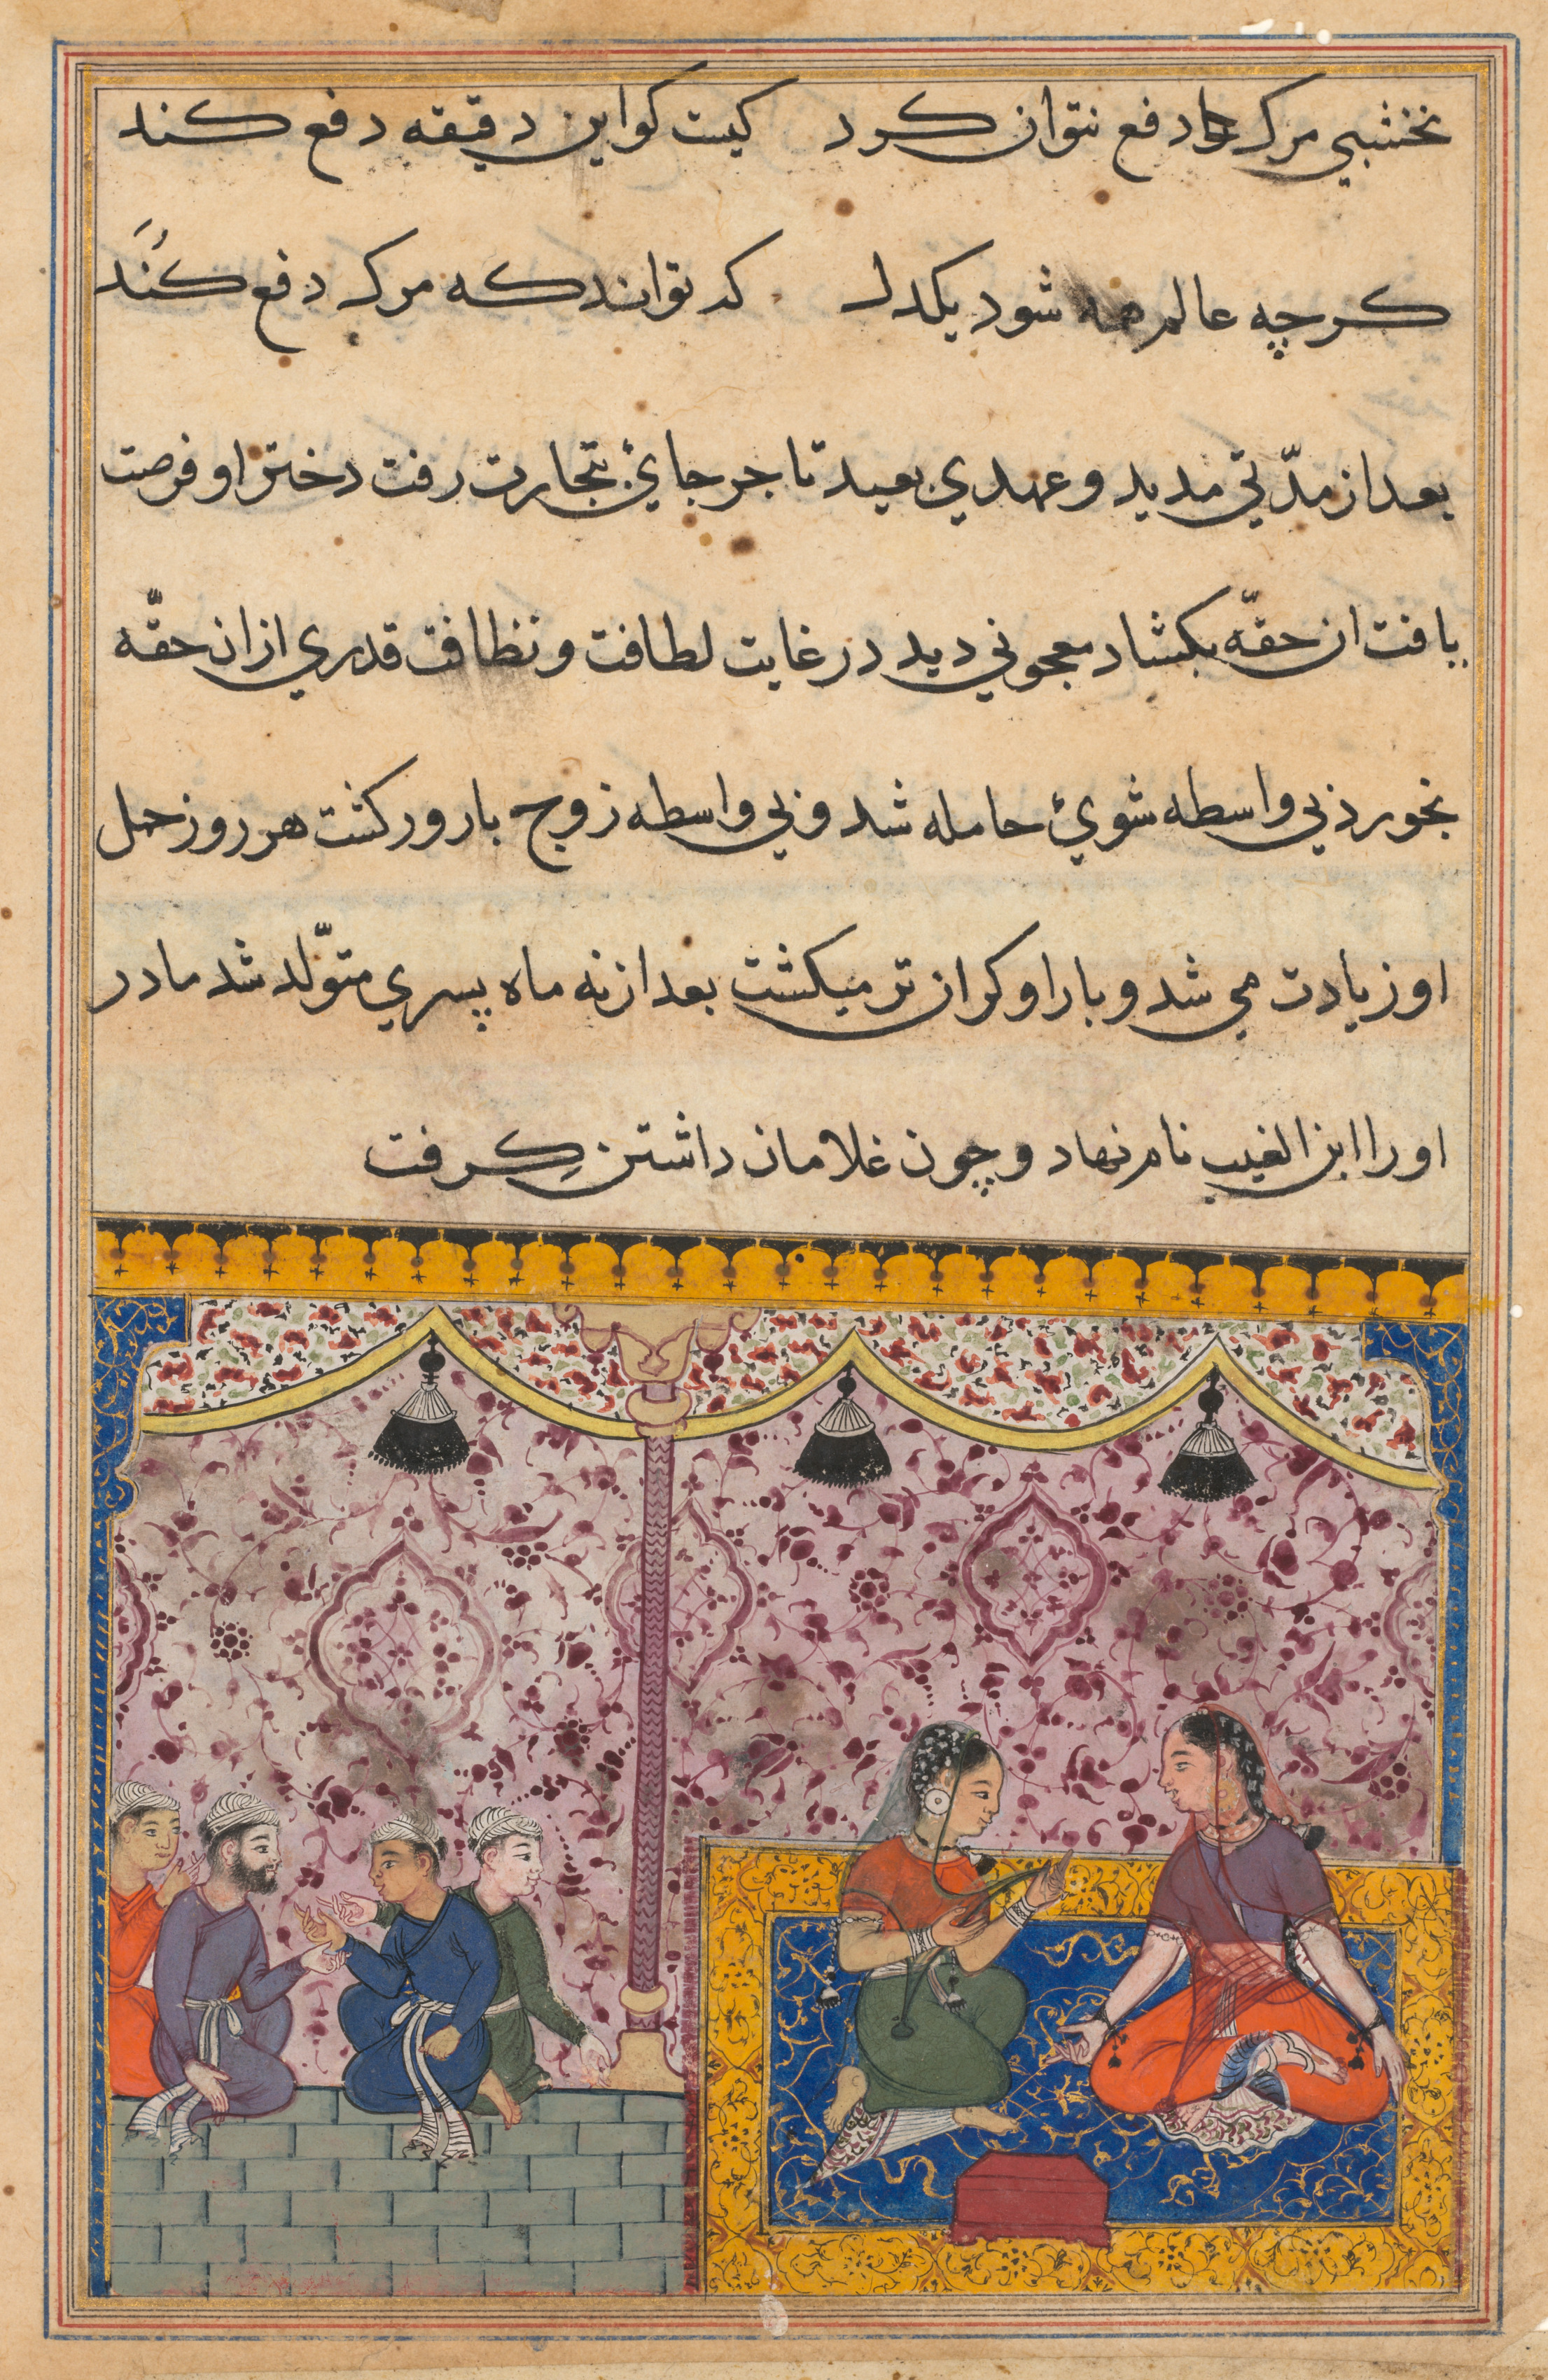 نخشبي مرك را دفع نتوان كرد كيست كو اين دقيقه دفع كند
كرچه عالم همه شود يكدل كه تواند كه مرك دفع كُنَد
بعد از مدّتي مديد و عهدي بعيد تاجر جايئ بتجارت رفت دختر او فرصت
يافت ان حقّه بكشاد معجوني ديد در غايت لطافت و نظافت قدري از ان حقّه
بخورد بي واسطه شويئ حامله شد و بي واسطه زوج بارور كشت هر روز حمل
او زيادت مي شد و بار او كران تر ميكشت بعد از نه ماه پسري متوّلد شد مادر
او را ابن الغيب نام نهاد و چون غلامان داشتن كِرفت